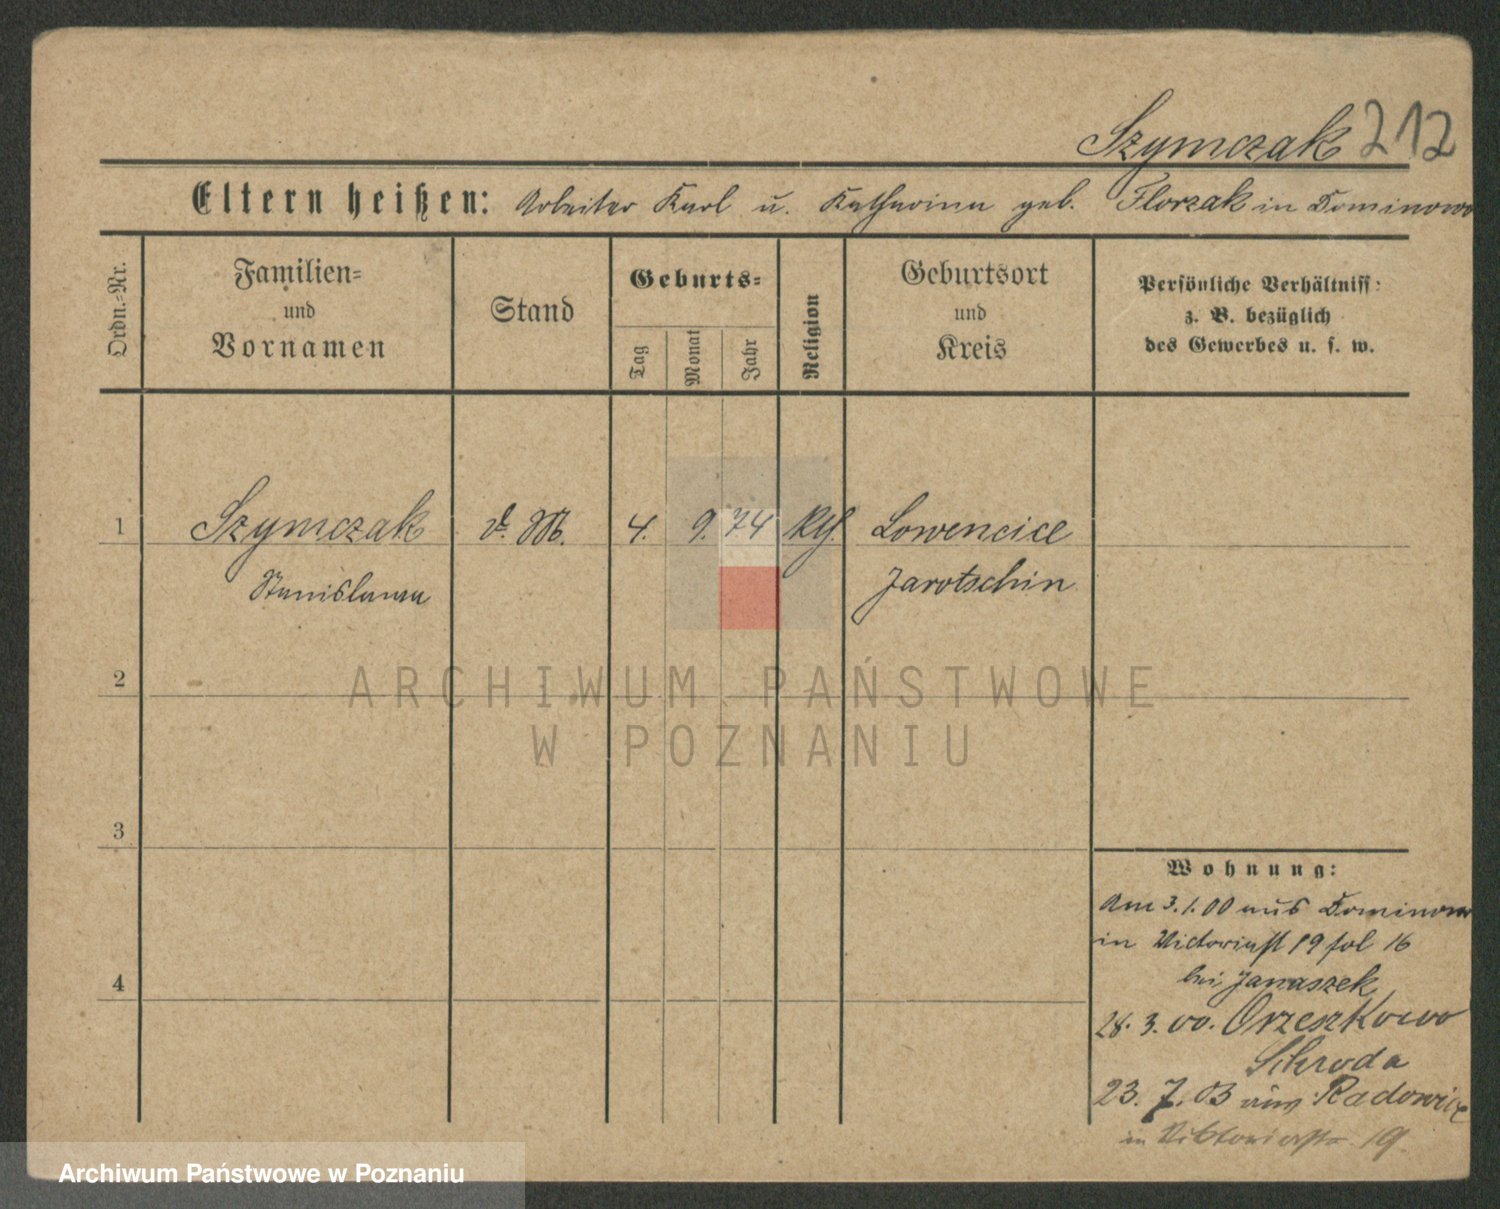 Szymczak 212
Eltern heißen: Arbeiter Karl u. Katharina geb. Florzak in Dominowo
Ordn.-Nr.
Familien-
und
Vornamen
Stand
Geburts-
Tag
Monat
Jahr
Religion
Geburtsort
und
Kreis
Persönliche Verhältniss:
z. B. bezüglich
des Gewerbes u. s. w.
1 Szymczak d. M. 4. 9. 74 kth. Lowencice
Stanislawa Jarotschin
2
3
4
Wohnung:
Am 3.1.00 aus Dominowo
in Victoriast 19 fol 16
bei Janaszek
28.3.00. Orzeszkowo
Schroda
23.7.03 aus Radowice
in Viktoriastr. 19.
ARCHIWUM PAŃSTWOWE
W POZNANIU
Archiwum Państwowe w Poznaniu